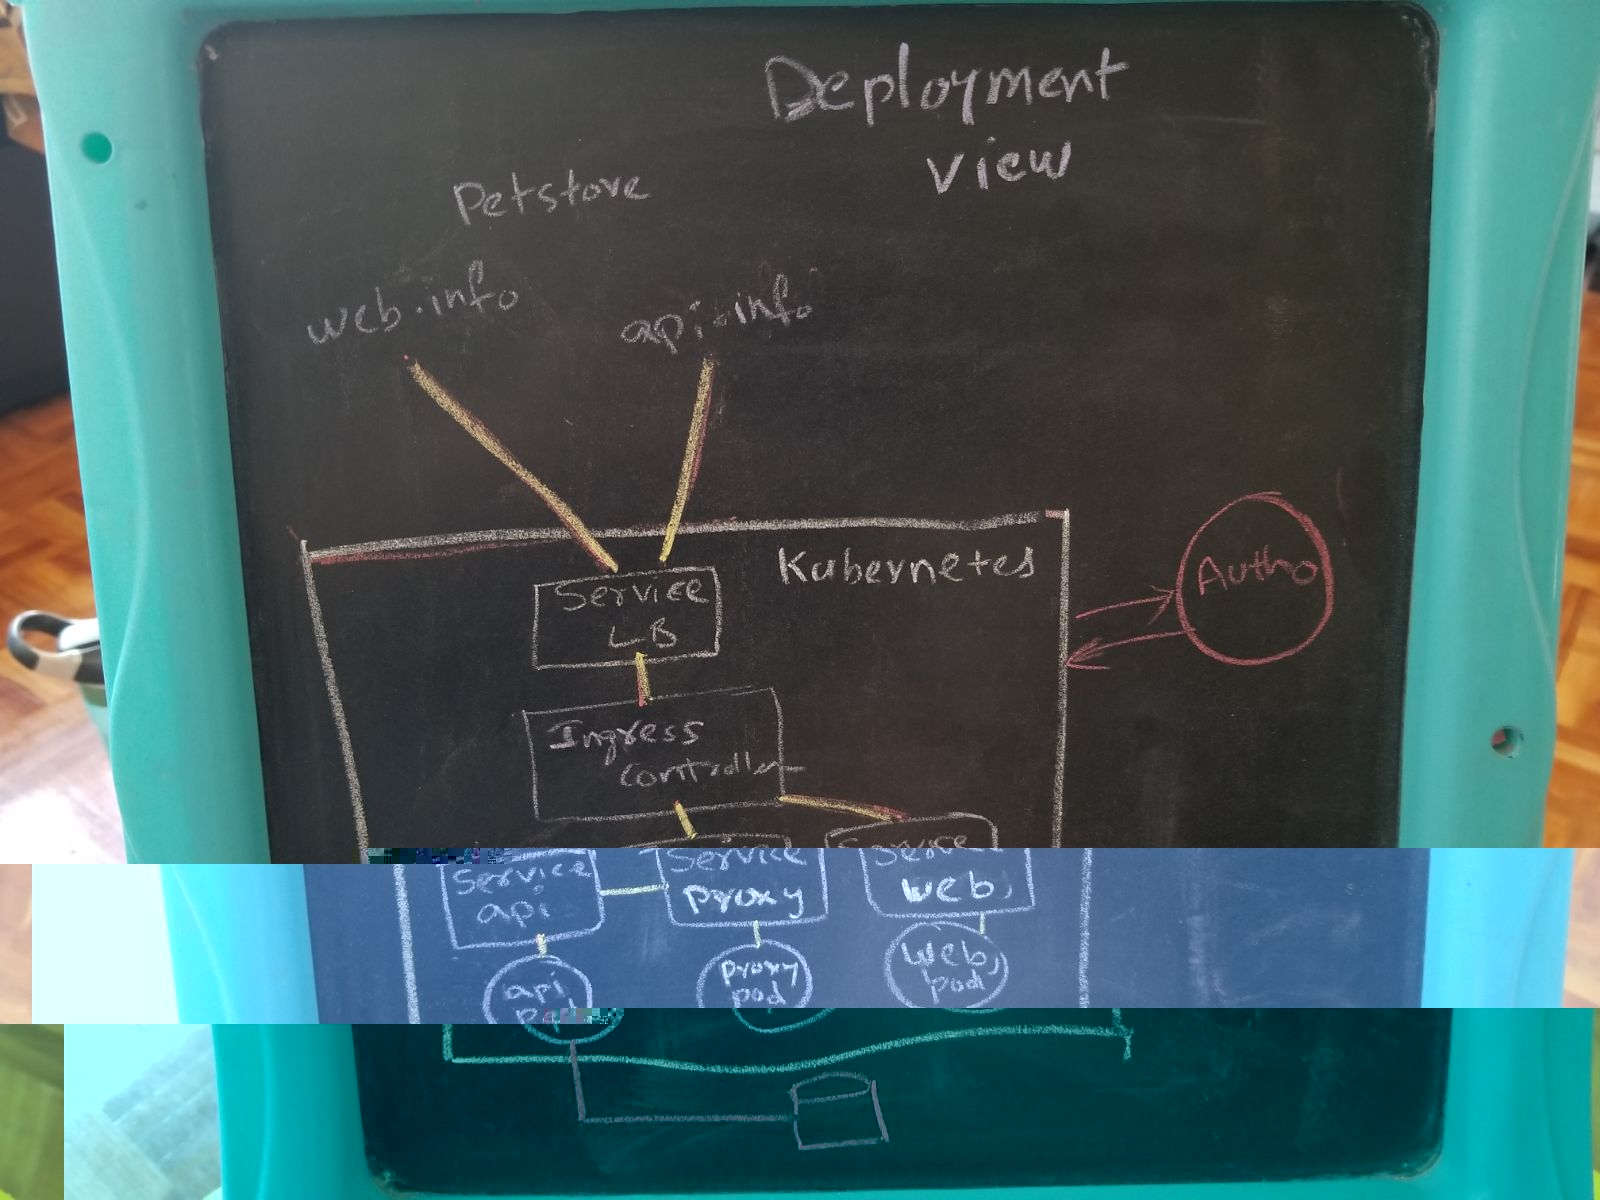 Deployment
view
Petstore
web.info
api.info
Kubernetes
Service
LB
Autho
Ingress
controller
Service
api
Service
proxy
Service
web
api
pod
proxy
pod
web
pod